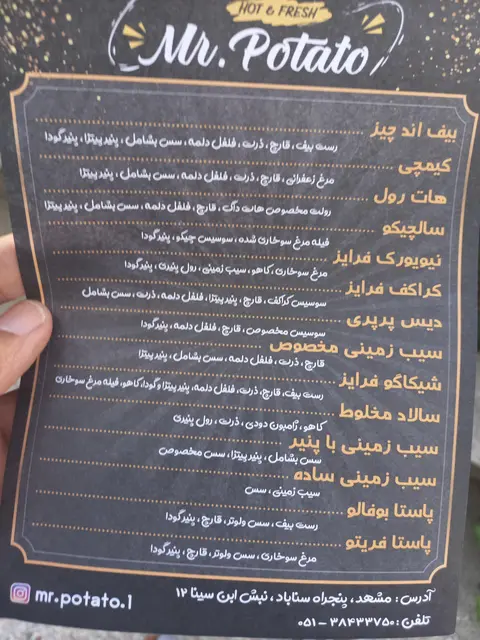 HOT & FRESH
Mr. Potato
بیف اند چیز
رست بیف، قارچ، ذرت، فلفل دلمه، سس بشامل، پنیر پیتزا، پنیر گودا
کیمچی
مرغ زعفرانی، قارچ، ذرت، فلفل دلمه، سس بشامل، پنیر پیتزا
هات رول
رولت مخصوص هات داگ، قارچ، فلفل دلمه، سس بشامل، پنیر پیتزا
سالچیکو
فیله مرغ سوخاری شده، سوسیس چیکو، پنیر گودا
نیویورک فرایز
مرغ سوخاری، کاهو، سیب زمینی، رول پنیری، پنیر گودا
کراکف فرایز
سوسیس کراکف، قارچ، پنیر پیتزا، فلفل دلمه، ذرت، سس بشامل
دیس پرپری
سوسیس مخصوص، قارچ، فلفل دلمه، پنیر گودا
سیب زمینی مخصوص
قارچ، ذرت، فلفل دلمه، سس بشامل، پنیر پیتزا
شیکاگو فرایز
رست بیف، قارچ، ذرت، فلفل دلمه، پنیر پیتزا و گودا، کاهو، فیله مرغ سوخاری
سالاد مخلوط
کاهو، ژامبون دودی، ذرت، رول پنیری
سیب زمینی با پنیر
سس بشامل، پنیر پیتزا، سس مخصوص
سیب زمینی ساده
سیب زمینی، سس
پاستا بوفالو
رست بیف، سس ولوتر، قارچ، پنیر گودا
پاستا فریتو
مرغ سوخاری، سس ولوتر، قارچ، پنیر گودا
آدرس: مشهد، پنجراه سناباد، نبش ابن سینا ۱۲
mr.potato.1
تلفن: ۳۸۴۳۳۷۵۰ - ۰۵۱